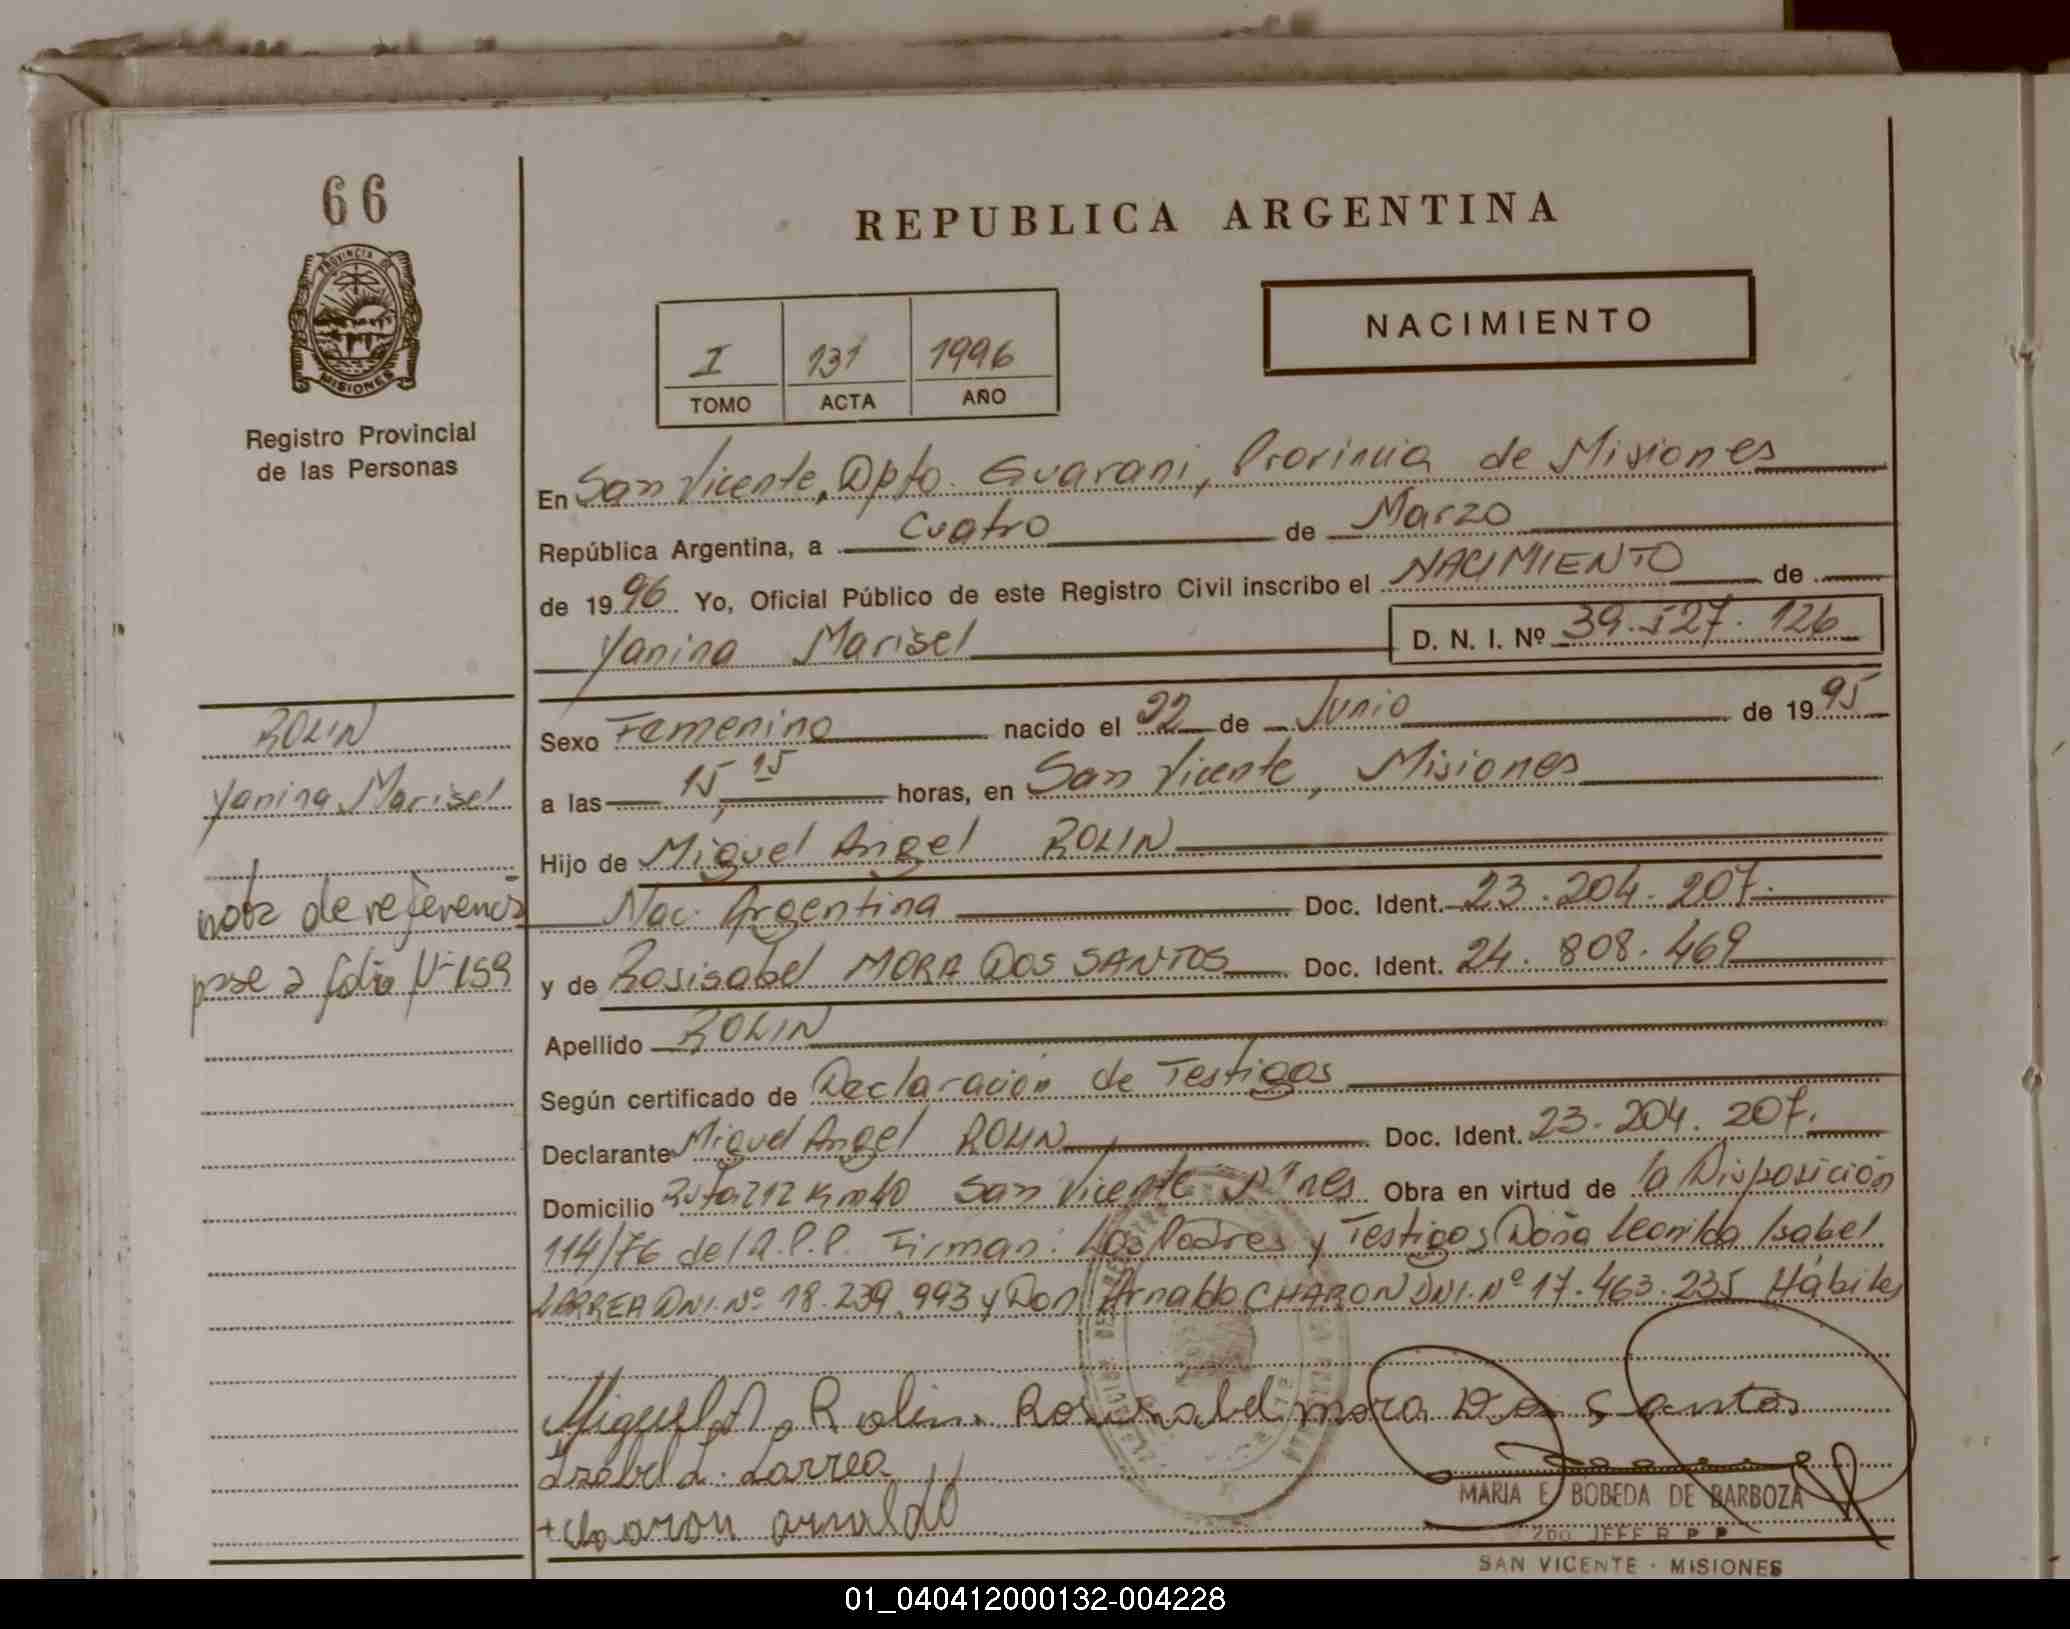 66
PROVINCIA DE
MISIONES
Registro Provincial
de las Personas
REPUBLICA ARGENTINA
NACIMIENTO
I 131 1996
TOMO ACTA AÑO
En San Vicente, Dpto. Guarani, Provincia de Misiones
República Argentina, a Cuatro de Marzo
de 1996 Yo, Oficial Público de este Registro Civil inscribo el NACIMIENTO de
Yanina Marisel D. N. I. Nº 39.527.126
Sexo Femenino nacido el 22 de Junio de 1995
a las 15,15 horas, en San Vicente, Misiones
Hijo de Miguel Angel ROLIN
Nac. Argentina Doc. Ident. 23.204.207.
y de Rosisabel MORA DOS SANTOS Doc. Ident. 24.808.469
Apellido ROLIN
Según certificado de Declaración de Testigos
Declarante Miguel Angel ROLIN Doc. Ident. 23.204.207.
Domicilio Ruta 212 Km 40 San Vicente Mnes Obra en virtud de la Disposición
114/76 del R.P.P. Firman: Los Padres y Testigos Doña Leonilda Isabel
LARREA DNI. Nº 18.239.993 y Don Arnaldo CHARON DNI. Nº 17.463.235 Hábiles
ROLIN
Yanina Marisel
nota de referencia
pase a folio Nº 159
Miguel A. Rolin. Rosisabel mora Dos Santos
Isabel L. Larrea
+Charon arnaldo
MARIA E. BOBEDA DE BARBOZA
2do JEFE R P P
SAN VICENTE - MISIONES
01_040412000132-004228